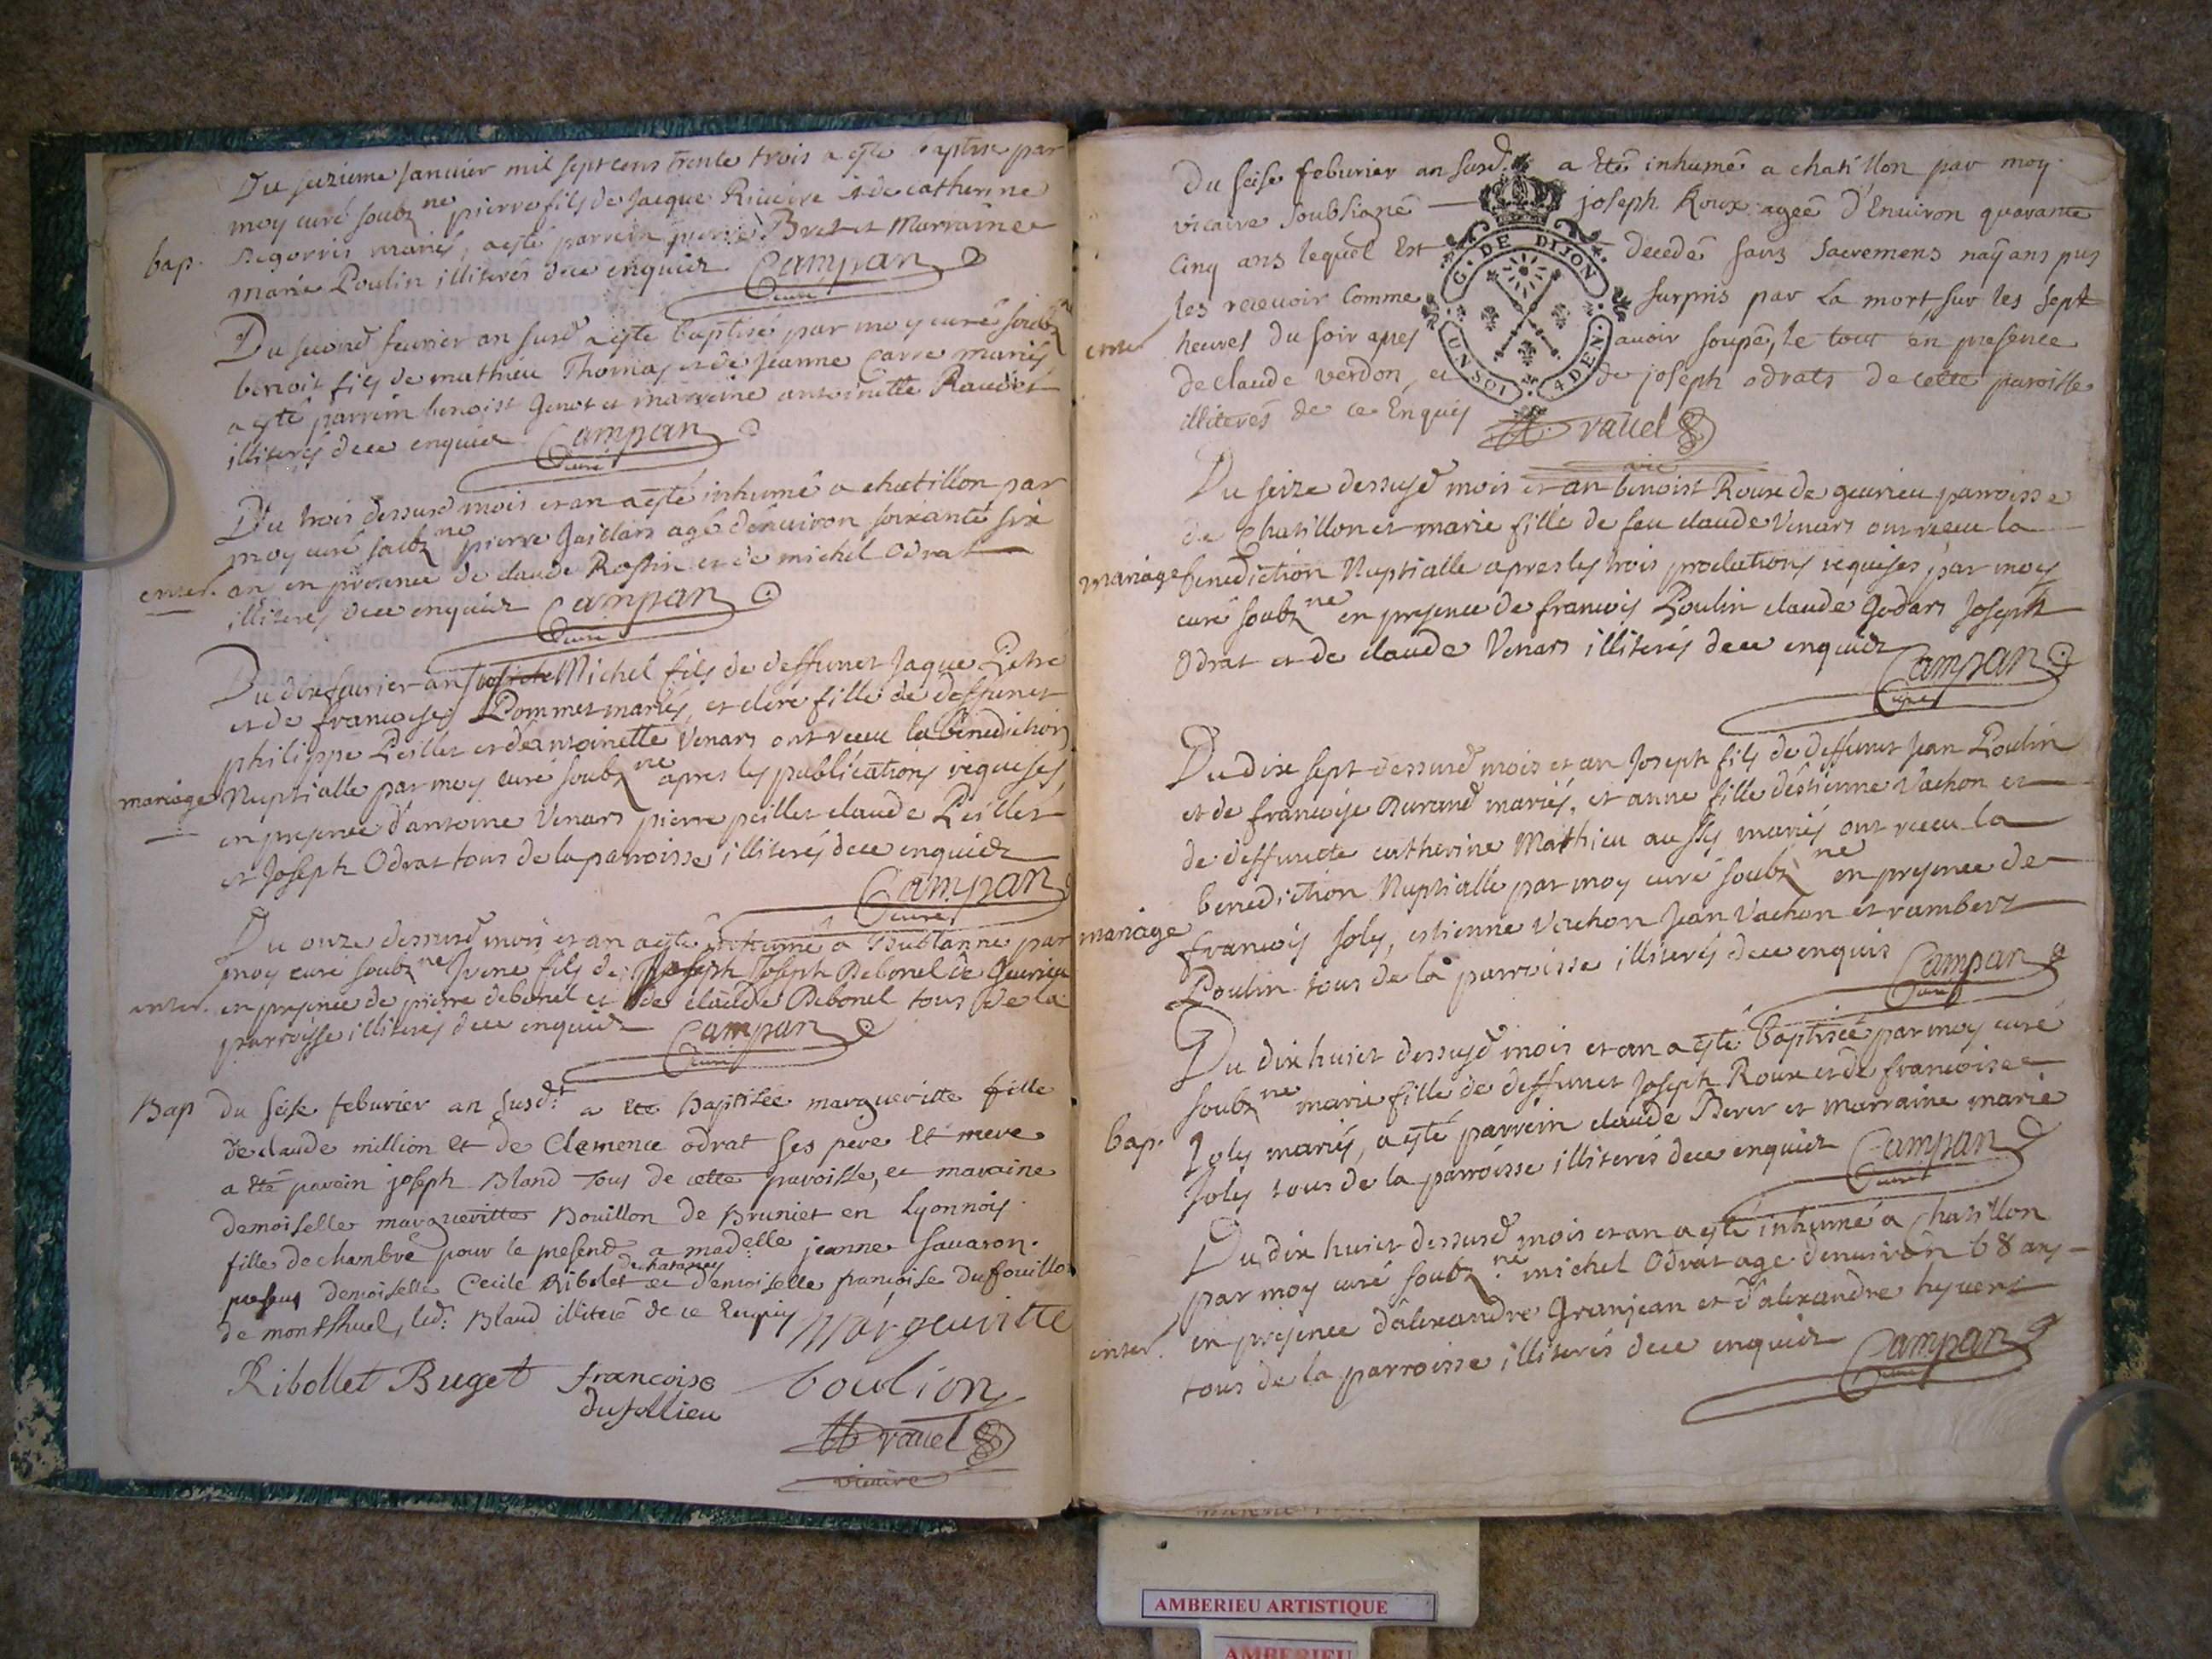 Du seizieme Janvier mil sept cens trente trois a esté baptisé par
moy curé soubz.ne pierre fils de Jacque Riviere et de catherine
bap. Degorris mariés, a esté parrein pierre Bret et Marraine
marie Poulin illiterés de ce enquis Campan
curé
Du second fevrier an susd a este baptisé par moy curé soubz.ne
benoit fils de mathieu Thomas et de Jeanne Carre mariés
a esté parrein benoist Genot et marreine antoinette
illiterés de ce enquis Campan
curé
Du trois dessusd mois et an a esté inhumé a chatillon par
moy curé soubz.ne pierre Gaillard agé denviron soixante six
enter. an en presence de claude Rostin et de michel Odrat
illiterés de ce enquis Campan
curé
Du dix fevrier an Michel fils de deffunct Jaque Petre
et de francoise Pommet mariés, et clere fille de deffunct
philippe Peillet et d'antoinette Venard ont receu la benediction
mariage Nuptialle par moy curé soubz.ne apres les publications requises
en presence d'antoine Venard pierre peillet claude Peillet
et Joseph Odrat tous de la parroisse illiterés de ce enquis
Campan
curé
Du onze dessusd mois et an a esté inhumé a par
moy curé soubz.ne fils de Joseph Debonel de Geurieu
enter. en presence de pierre debonel et de claude Debonel tous de la
parroisse illiterés de ce enquis Campan
curé
Bap du seise feburier an susd.t a eté Baptisée margueritte fille
de claude million et de Clemence odrat ses pere et mere
a eté parein joseph Bland tous de cette paroisse, et maraine
demoiselle margueritte Bouillon de Bruniet en Lyonnois
fille de chambre pour le present a mad.elle jeanne savaron.
presens demoiselle Cecile Ribolet et demoiselle francoise dufouillo
de monthuel, led. Bland illiteré de ce enquis Margueritte
Ribollet Buget francoise boulion
dufollieu
ravel
vicaire
Du seise feburier an susd. a eté inhumé a chatillon par moy
vicaire soubsigné joseph Roux ageé d'Environ quarante
Cinq ans lequel Est decedé sans sacremens nayans pus
les recevoir Comme surpris par la mort, sur les sept
enter heures du soir apres avoir soupé, le tout en presence
de claude verdon, et de joseph odrats de cette paroisse
illiterés de ce Enquis ravel
vic
G. DE DIJON
UN SOL 4 DEN.
Du seize dessusd mois et an benoist Roux de geurieu parroisse
de Chatillon et marie fille de feu claude Venard ont receu la
mariage benediction Nuptialle apres les trois proclations requises par moy
curé soubz.ne en presence de francois Poulin claude Godard Joseph
Odrat et de claude Venard illiterés de ce enquis
Campan
curé
Du dix sept dessusd mois et an Joseph fils de deffunct Jean Poulin
et de francoise Durand mariés, et anne fille d'éstienne Vachon et
de deffuncte catherine Mathieu aussy mariés ont receu la
benediction Nuptialle par moy curé soubz.ne en presence de
mariage francois Joly, estienne Vachon Jean Vachon et rambert
Poulin tous de la parroisse illiterés de ce enquis Campan
curé
Du dix huict dessusd mois et an a esté baptisée par moy curé
soubz.ne marie fille de deffunct Joseph Roux et de francoise
bap. Joly mariés, a esté parrein claude Berer et marraine marie
Joly tous de la parroisse illiterés de ce enquis Campan
curé
Du dix huict dessusd mois et an a esté inhumé a Chatillon
par moy curé soubz.ne michel Odrat age denviron 68 ans
enter. en presence d'alexandre Granjean et d'alexandre hyvert
tous de la parroisse illiterés de ce enquis Campan
curé
AMBERIEU ARTISTIQUE
AMBERIEU